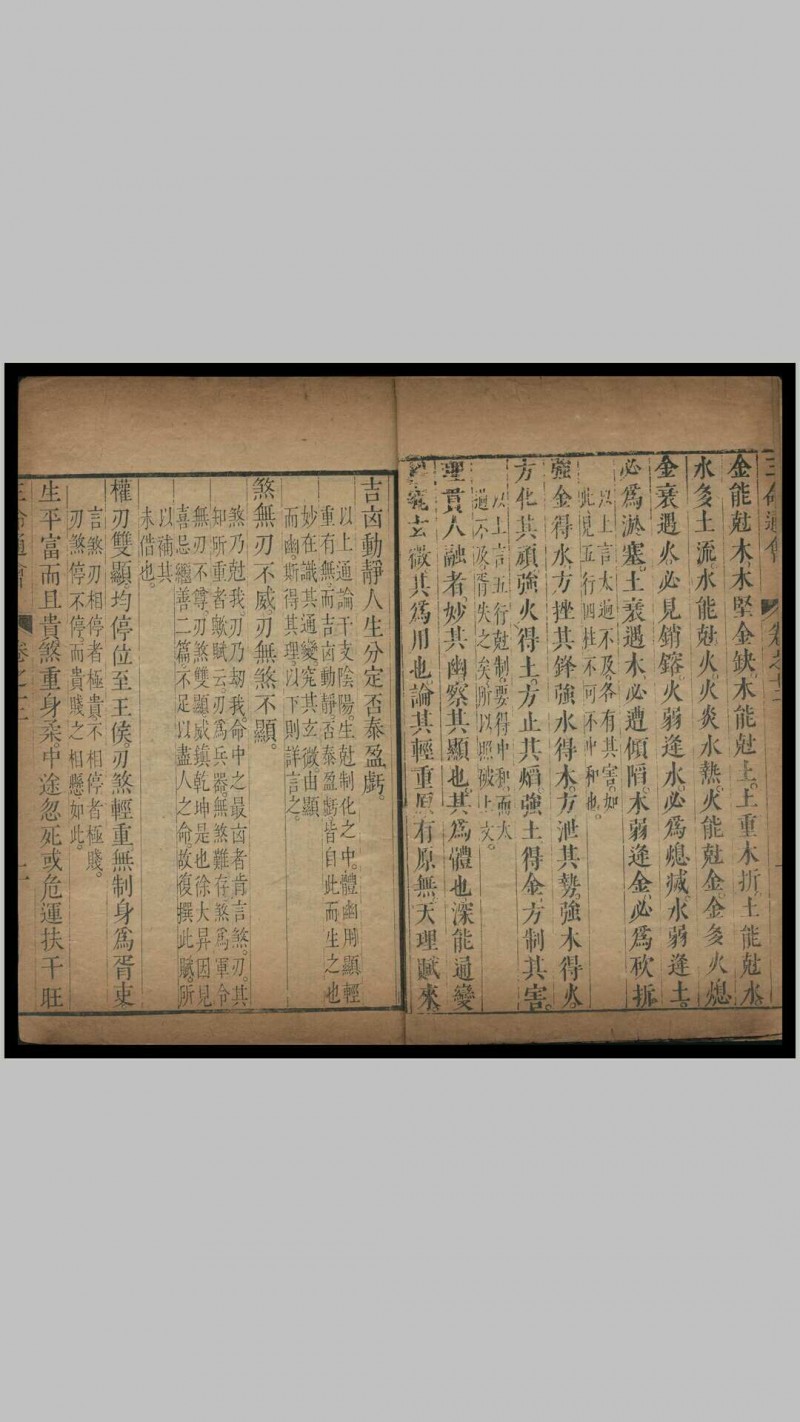 三命通會 卷之十二
金能尅木木堅金缺木能尅土土重木折土能尅水
水多土流水能尅火火炎水熱火能尅金金多火熄
金衰遇火必見銷鎔火弱逢水必為熄滅水弱逢土
必為淤塞土衰遇木必遭傾陷木弱逢金必為砍折
以上言太過不及各有其害如
此見五行四柱不可不中和也
強金得水方挫其鋒強水得木方泄其勢強木得火
方化其頑強火得土方止其熖強土得金方制其害
以上言五行尅制要得中和而太
過不及胥失之矣所以照破上文
理貫人融者妙其幽察其顯也其為體也深能通變
究玄微其為用也論其輕重原有原無天理賦來
吉凶動靜人生分定否泰盈虧
以上通論干支陰陽生尅制化之中體幽用顯輕
重有無而吉凶動靜否泰盈虧皆自此而生之也
妙在識其通變究其玄微由顯
而幽斯得其理以下則詳言之
煞無刃不威刃無煞不顯
煞乃尅我刃乃刼我命中之最凶者肯言煞刃其
知所重者歟賦云刃為兵器無煞難存煞為軍令
無刃不尊刃煞雙顯威鎮乾坤是也徐大昇因見
喜忌繼善二篇不足以盡人之命故復撰此賦所
以補其
未僃也
權刃雙顯均停位至王侯刃煞輕重無制身為胥吏
言煞刃相停者極貴不相停者極賤
刃煞停不停而貴賤之相懸如此
生平富而且貴煞重身柔中途忽死或危運扶干旺
三命通會 卷之十二